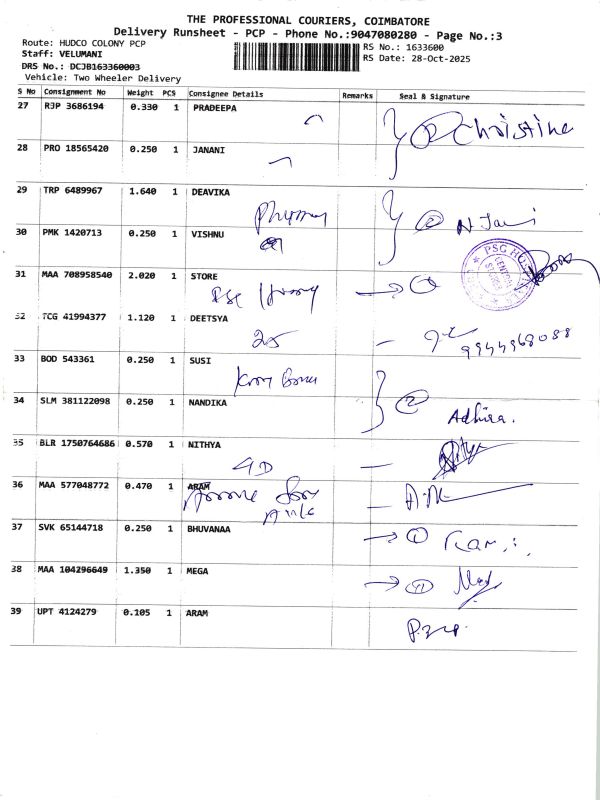 THE PROFESSIONAL COURIERS, COIMBATORE
Delivery Runsheet - PCP - Phone No.:9047080280 - Page No.:3
Route: HUDCO COLONY PCP
RS No.: 1633600
Staff: VELUMANI
RS Date: 28-Oct-2025
DRS No.: DCJB163360003
Vehicle: Two Wheeler Delivery
S No Consignment No Weight PCS Consignee Details Remarks Seal & Signature
27 RJP 3686194 0.330 1 PRADEEPA
Christine
28 PRO 18565420 0.250 1 JANANI
29 TRP 6489967 1.640 1 DEAVIKA
② N. Jani
30 PMK 1420713 0.250 1 VISHNU
31 MAA 708958540 2.020 1 STORE
PSG HOSPITALS
CENTRAL STORES
32 TCG 41994377 1.120 1 DEETSYA
25 - 9944968088
33 BOD 543361 0.250 1 SUSI
34 SLM 381122098 0.250 1 NANDIKA
② Adhira.
35 BLR 1750764686 0.570 1 NITHYA
GD
36 MAA 577048772 0.470 1 ARAM
37 SVK 65144718 0.250 1 BHUVANAA
38 MAA 104296649 1.350 1 MEGA
39 UPT 4124279 0.105 1 ARAM